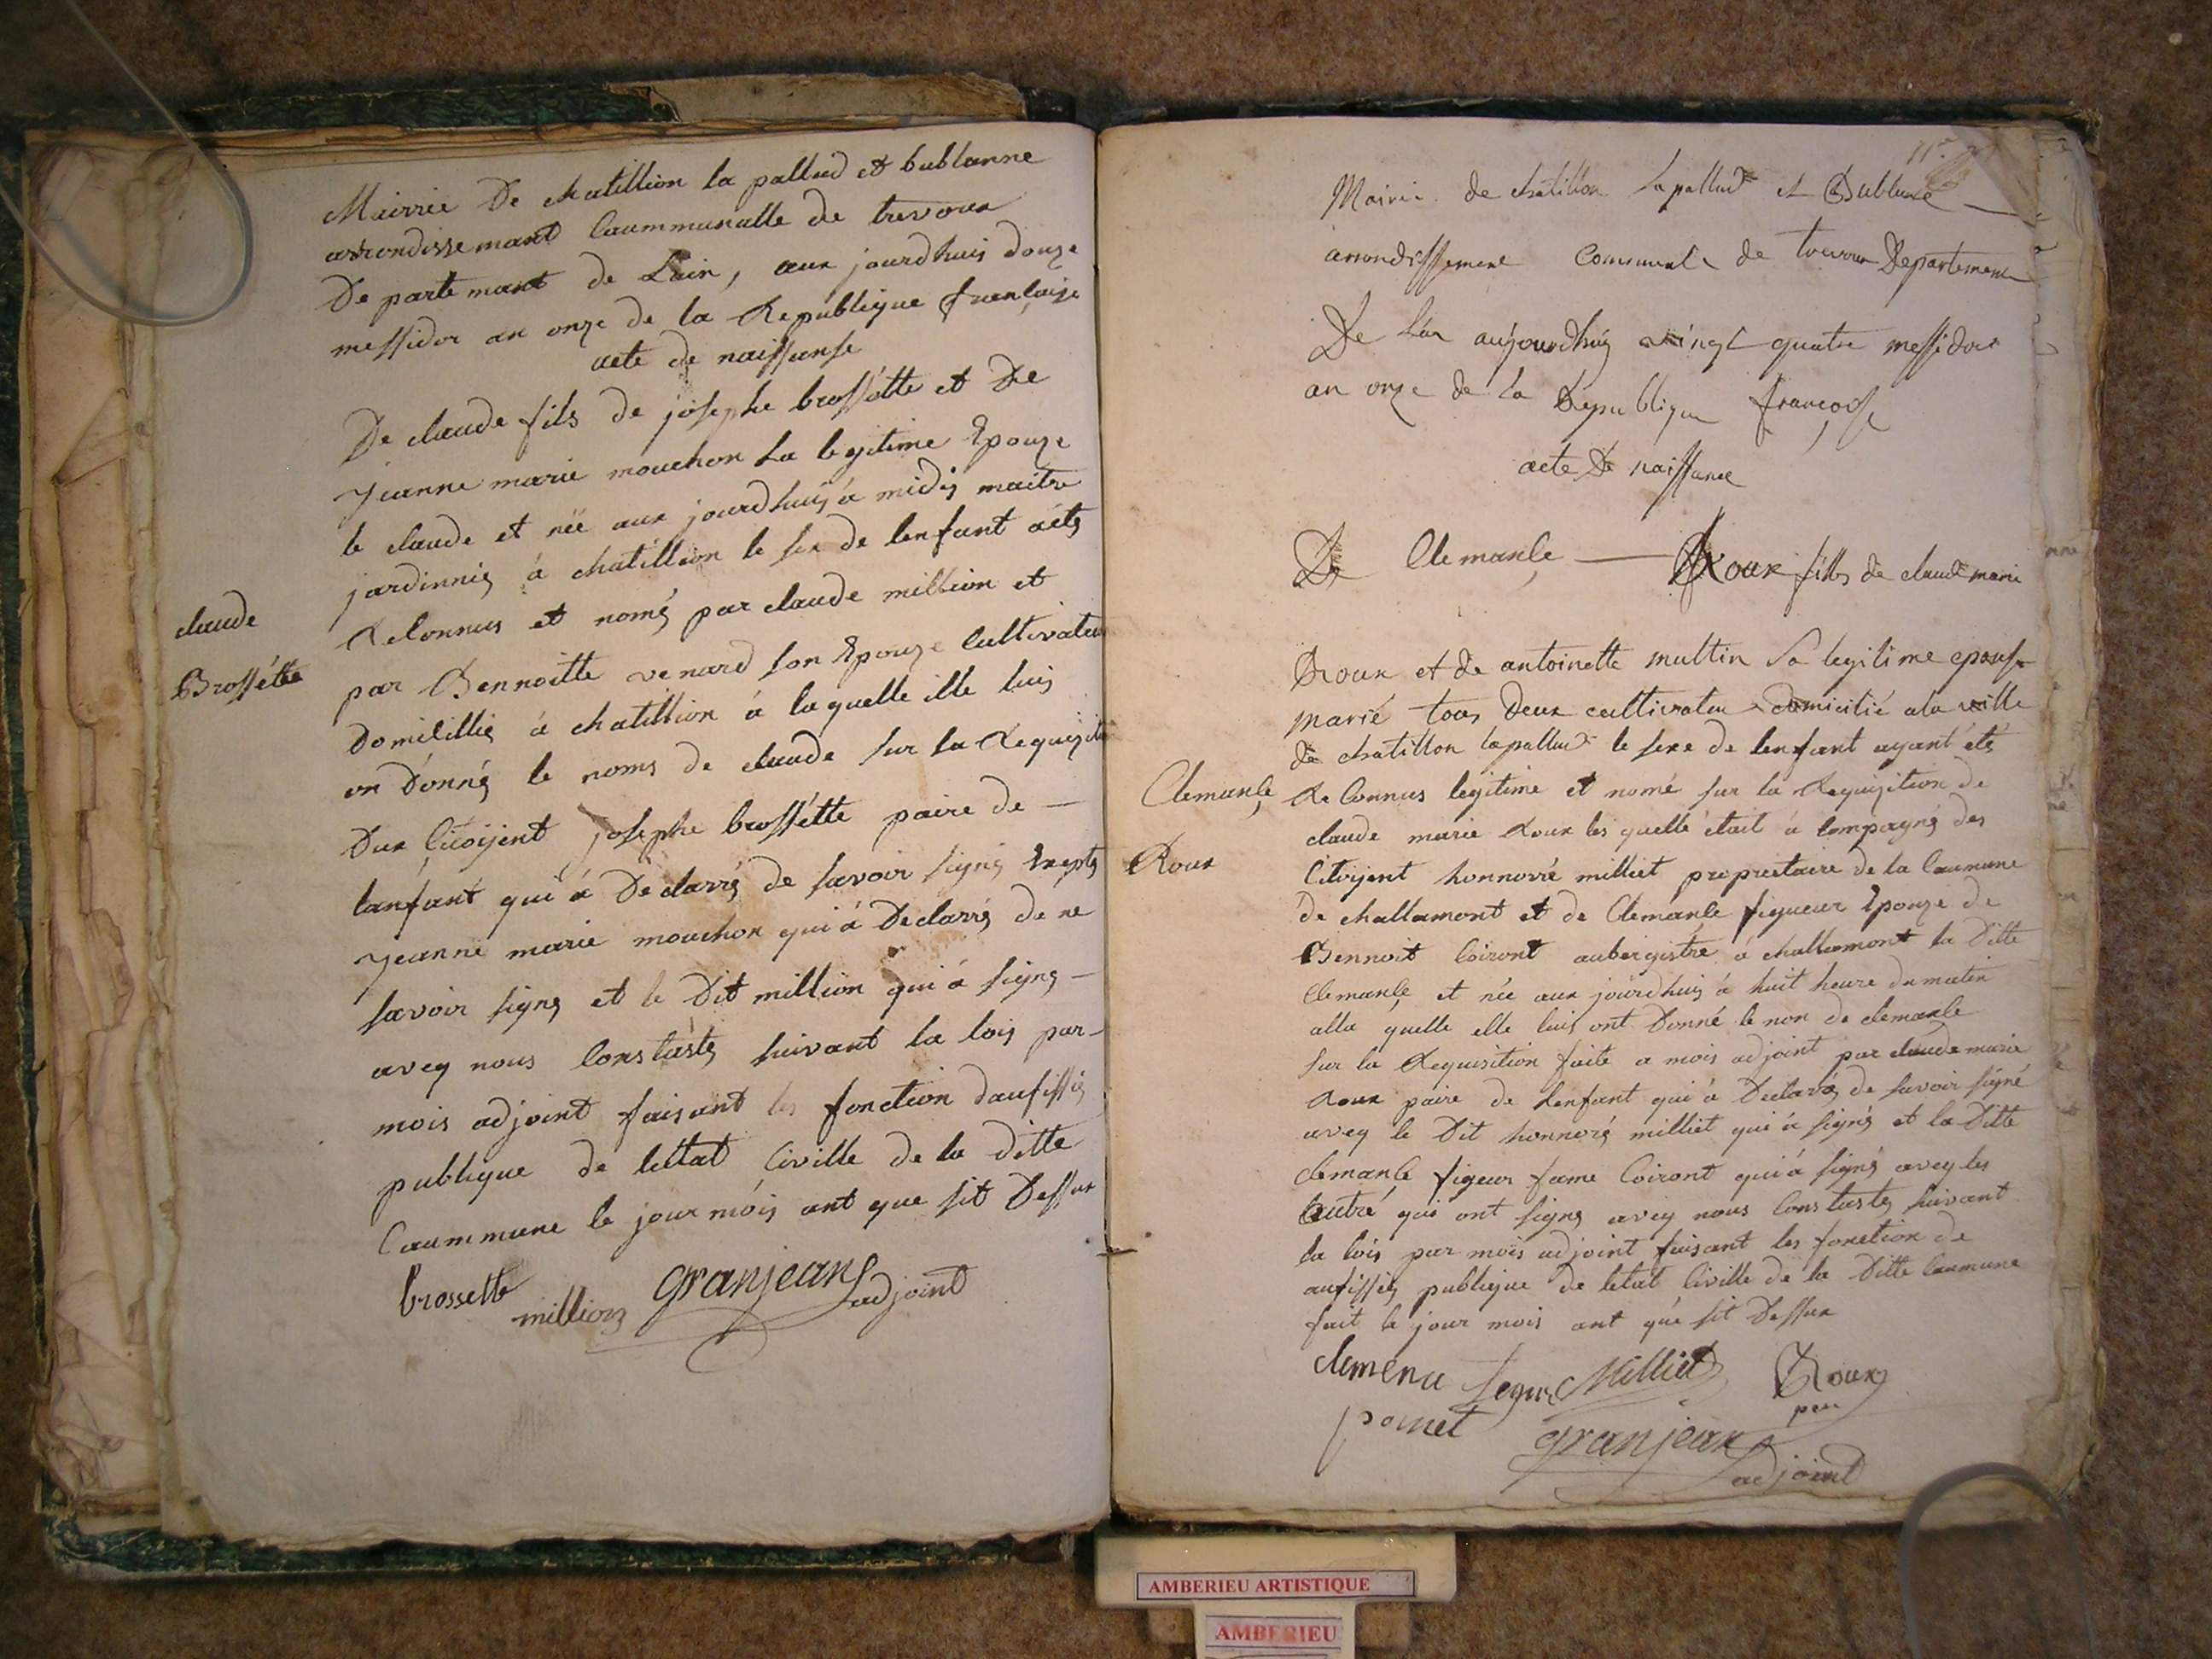 Mairrie De chatillion la pallud et bublanne
arrondissemant Caummunalle de trevoux
De partemant de Lain, aux jourdhuis douze
messidor an onze de la Republique française
acte de naissanse
De claude fils de josephe brossétte et De
jeanne marie mouchon La legitime Epouze
le claude et née aux jourdhuis á midis maitre
jardinnis á chatillion le sex de lenfant aëtes
Reconnus et només par claude million et
claude
Brossétte
par Bennoitte venard son Epouze Cultivateur
Domicillis á chatillion á laquelle ille luis
on Donnés le noms de claude sur la Requizition
Dux Çitoijent josephe brossétte paire de —
lanfant qui á Déclarrés de savoir signés Exeptes
jeanne marie mouchon qui á Declarrés de ne
savoir signs et le Dit million qui á signs —
aveq nous Constastés suivant la lois par-
mois adjoint faisant les fonction daufissis
publique de lettat Civille de la ditte
Caummune le jour móis ant que sit Dessux
brossette million granjean adjoint
Mairie de chatillon Lapallud et Bublane
arrondissement Communale de trevoux Departement
De Lain aujourdhuy vingt quatre messidor
an onze de la République françoise
acte De naissance
De Clemançe — Roux filles de claude marie
Roux et de antoinette multin Sa legitime epouse
marié tous deux cultivateur domicilié a la ville
de chatillon lapallud le sexe de lenfant ayant été
Clemançe
Roux
Re Connus legitime et nomé sur la Requizition de
claude marie Roux les quelle était á Compagnés des
Citoijent honnorré milliet proprietaire de la Caumune
de challamont et de Clemance figueur Epouze de
Bennoit Coiront aubergistre á challamont la Ditte
Clemançe et née aux jourdhuis á huit heure du matin
alla quelle elle luis ont Donné le non de clemance
sur la Requisition faite a mois adjoint par claude marie
Roux paire de Lenfant qui á Déclarés de savoir signé
aveq le Dit honnorés milliet qui á signés et la Ditte
clemance figeur fame Coiront qui á signés aveq les
Cautré qui ont signs aveq nous Constastés suivant
la lois par mois adjoint faisant les fonction de
aufissies publique de letat Civille de la Ditte Caumune
fait le jour mois ant qué sit Dessux
clemence Milliet Roux
pomet granjean adjoint
AMBERIEU ARTISTIQUE
AMBERIEU